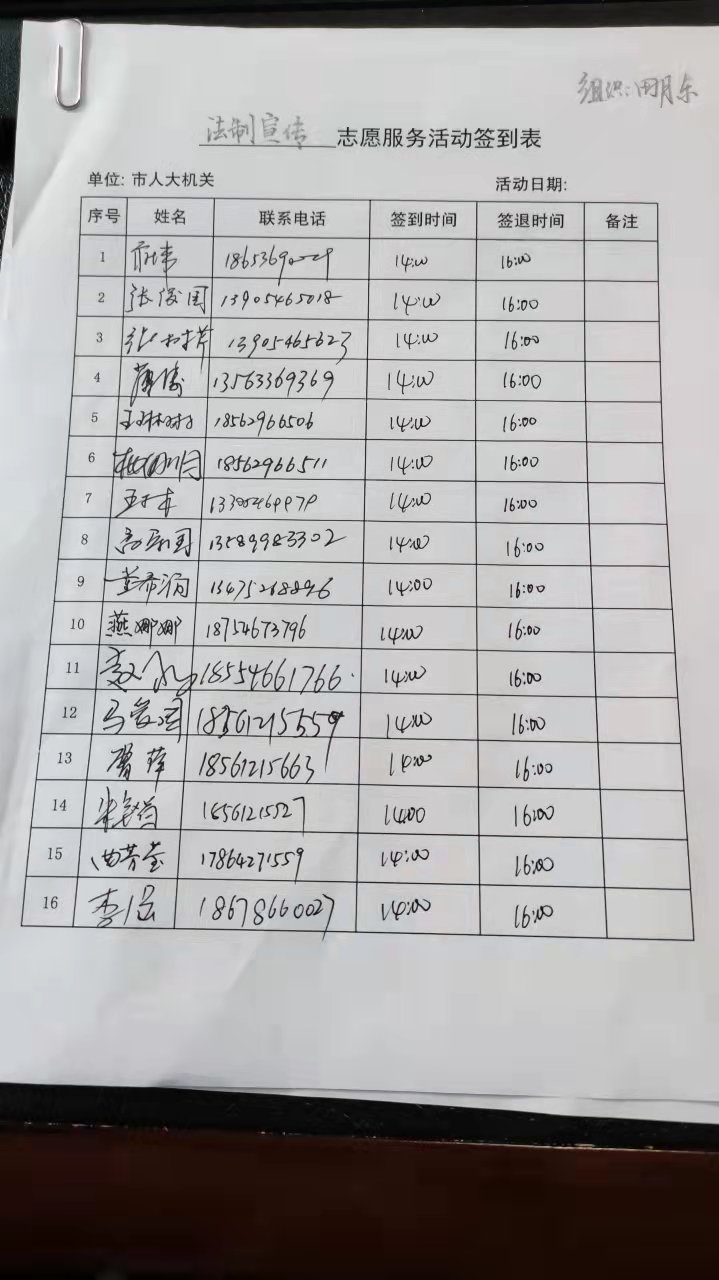 组织:田月东
法制宣传 志愿服务活动签到表
单位: 市人大机关 活动日期:
序号 姓名 联系电话 签到时间 签退时间 备注
1 14:00 16:00
2 张俊国 13905465018 14:00 16:00
3 13905465623 14:00 16:00
4 13563369369 14:00 16:00
5 18562966506 14:00 16:00
6 18562966511 14:00 16:00
7 14:00 16:00
8 13589983302 14:00 16:00
9 13475268896 14:00 16:00
10 燕娜娜 18754673796 14:00 16:00
11 18554661766 14:00 16:00
12 18561215559 14:00 16:00
13 18561215663 14:00 16:00
14 18561215527 14:00 16:00
15 曲芳莹 17864271559 14:00 16:00
16 18678660027 14:00 16:00